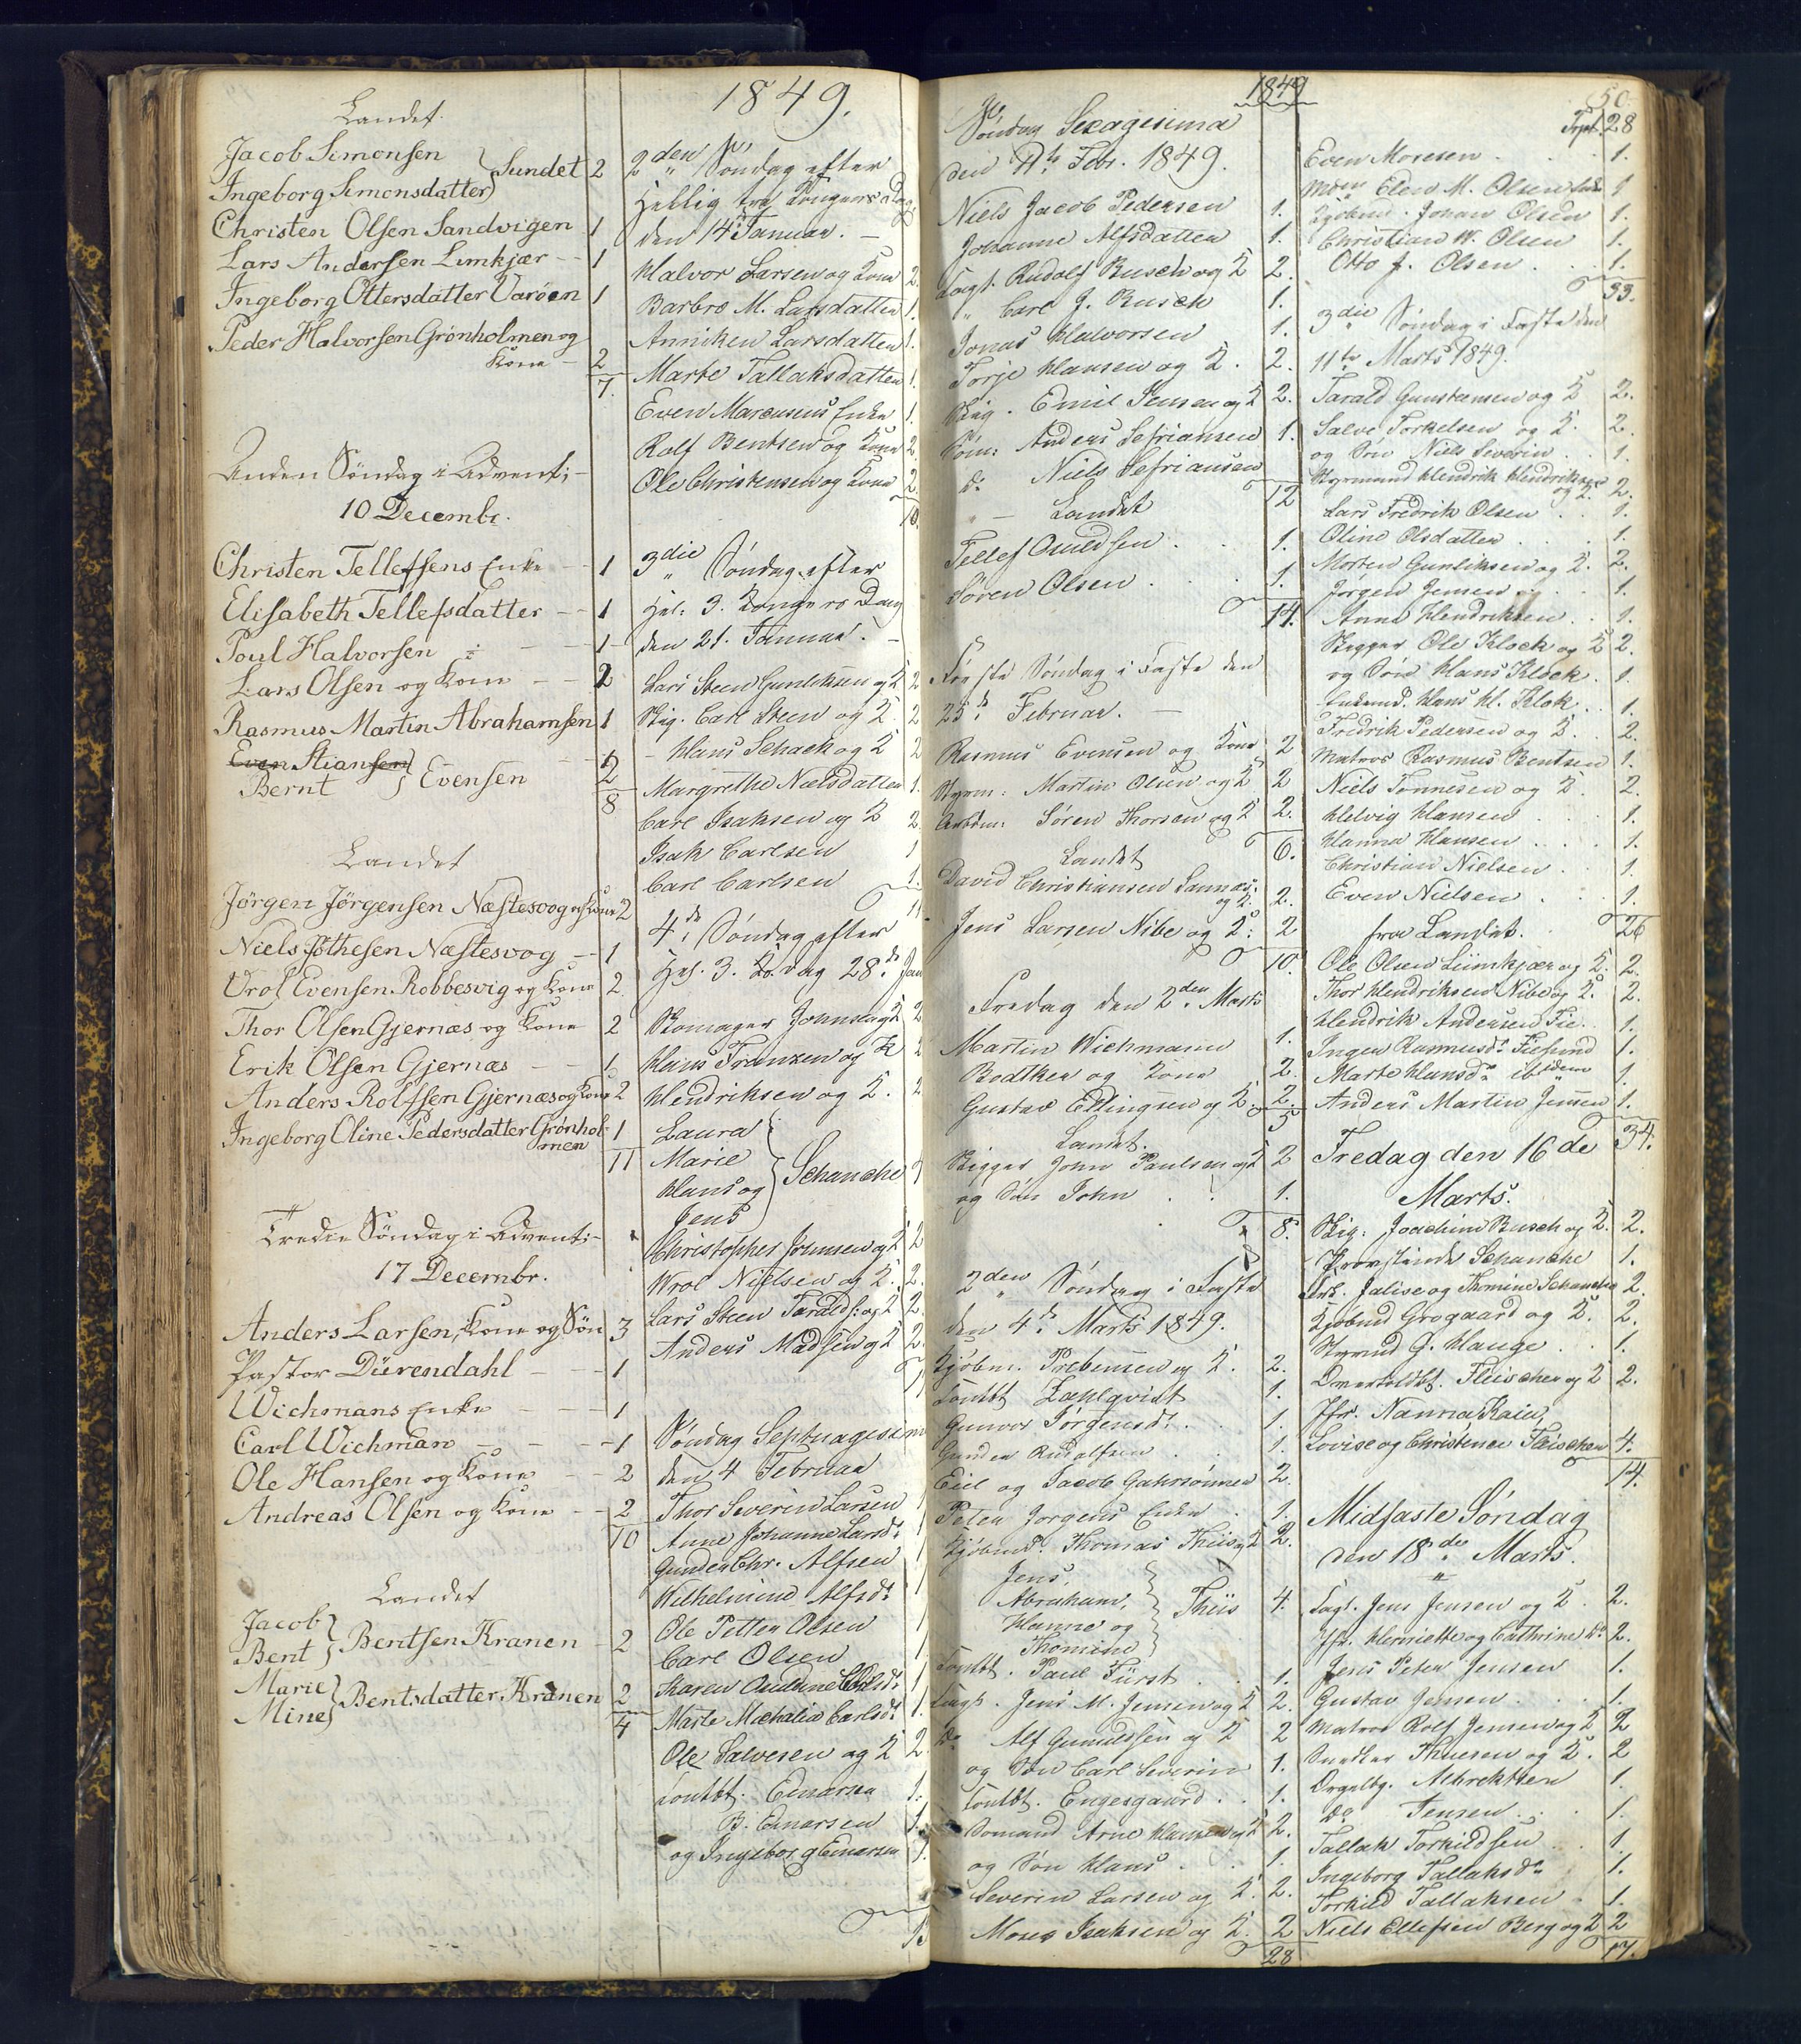 Landet
Jacob Simonsen
Ingeborg Simonsdatter } Sundet 2
Christen Olsen Sandvigen 1
Lars Andersen Limkjær - - 1
Ingeborg Ottersdatter Varöen 1
Peder Halvorsen Grønholmen og
Kone - 2
7.
Anden Søndag i Advent;-
10 Decembr.
Christen Tellefsens Enke - 1
Elisabeth Tellefsdatter - - 1
Poul Halvorsen - - - 1
Lars Olsen og Kone - - 2
Rasmus Martin Abrahamsen 1
Even Stiansen
Bernt } Evensen 2
8
Landet
Jørgen Jørgensen Næstesvog og Kone 2
Niels Mathesen Næstesvog - 1
Vrol Evensen Robbesvig og Kone 2.
Thor Olsen Gjernæs og Kone 2
Erik Olsen Gjernæs - - 1
Anders Rolfsen Gjernæs og Kone 2
Ingeborg Oline Pedersdatter Grønhol- 1
men
11
Tredie Søndag i Advent;-
17 Decembr.
Anders Larsen, Kone og Søn 3
Pastor Dürendahl - - 1
Wichmans Enke - - - 1
Carl Wichman - - - 1
Ole Hansen og Kone - - 2
Andreas Olsen og Kone - - 2
10
Landet
Jacob
Bent } Bentsen Kranen - 2
Marie
Mine } Bentsdatter Kranen 2
4
1849.
2den Søndag efter
Hellig tre Kongers Dag
den 14d Januar. -
Halvor Larsen og Kone 2.
Barbro M. Larsdatter 1.
Anniken Larsdatter 1.
Marte Tallaksdatter 1.
Even Marcusens Enke 1.
Rolf Bentsen og Kone 2
Ole Christensen og Kone 2.
10.
3die Søndag efter
Hel. 3. Kongers Dag
den 21. Januar. -
Lars Steen Gunleksen og K 2
Skip. Carl Steen og K. 2
- Hans Schack og K 2
Margrethe Nielsdatter 1.
Carl Isaksen og K 2.
Isak Carlsen 1
Carl Carlsen 1.
11.
4de Søndag efter
Hel. 3. Ko. dag 28de Jan
Skomager Johnsen og K 2
Hans Franzen og K 2
Hendriksen og K. 2
Laura
Marie
Hans og
Jens } Schanche
Christopher Johnsen og K 2
Wrol Nielsen og K. 2.
Lars Steen Taralds: og K 2.
Anders Madsen og K 2.
Søndag Septuagesim
den 4 Februar
Thor Severin Larsen 1
Anne Johanne Larsdr 1
Gunder Chr. Alfsen 1
Wilhelmine Alfsdr 1
Ole Petter Olsen 1
Carl Olsen 1
Karen Oudine Carlsdr 1
Marte Mathalia Carlsdr 1.
Ole Salvesen og K 2.
Contbt. Einarsen 1.
B. Einarsen 1.
og Ingeborg Einarsen 1.
13
1849
Søndag Sexagesima
den 11te Febr. 1849.
Niels Jacob Pedersen 1.
Johanne Alfsdatter 1.
Capt. Rudolf Busch og K 2.
" Carl J. Busch 1.
Jonas Halvorsen 1.
Torje Hansen og K. 2.
Skip. Emil Jensen og K 2.
Søm: Anders Sefriansen 1.
do Niels Sefriansen
12
- Landet
Tellef Omildsen . . 1.
Søren Olsen . . . 1.
14.
Første Søndag i Faste den
25d. Februar. -
Rasmus Evensen og Kone 2
Styrm: Martin Olsen og K 2
Arbdm: Søren Thorsen og K 2.
6.
Landet
David Christiansen Sannæs
og K. 2.
Jens Larsen Nibe og K. 2
10.
Fredag den 2den Marts
Martin Wichmann 1.
Bodtker og Kone 2.
Gustav Ellingsen og K. 2.
5
Landet.
Skipper John Paulsen og K 2
og Søn John . . 1.
8.
2den Søndag i Faste
den 4de Marts 1849.
Kjøbm. Prebensen og K. 2.
Contbt Zahlqvist 1.
Gunvor Jörgensdr . 1.
Gunder Rudolfsen . 1.
Eiel og Jacob Gahrsønner 2.
Peter Jørgens Enke . 1.
Kjøbmd. Thomas Thiis og K 2.
Jens,
Abraham,
Hanne og
Thomine } Thiis 4.
Contbt. Paul Fürst . . 1.
Capt. Jens M. Jensen og K 2.
do Alf Gunuldsen og K 2
og Søn Carl Severin 1.
Contbt. Engesgaard . . 1.
Sömand Arne Hansen og K 2.
og Søn Hans . . 1.
Severin Larsen og K. 2.
Moses Isaksen og K. 2
28
50.
Trpt. 28
Even Moresen . . . 1.
Elen M. Olsen 1
Kjøbmd. Johan Olsen 1.
Christian W. Olsen 1.
Otto J. Olsen . . 1.
33.
3die Søndag i Faste den
11te Marts 1849.
Tarald Gunstensen og K 2.
Salve Torkelsen og K. 2.
og Søn Niels Severin . . 1.
Styrmand Hendrik Hendriksen
og K. 2.
Lars Fredrik Olsen . . 1.
Oline Olsdatter . . . 1.
Morten Gunleksen og K. 2.
Jørgen Jensen . . . 1.
Anna Hendriksen . . 1.
Skipper Ole Klock og K 2.
og Søn Hans Klock . 1.
Hans H. Klok . . 1.
Fredrik Pedersen og K. . 2.
Matros Rasmus Bentsen 1.
Niels Tønnesen og K. 2.
Helvig Hansen . . 1.
Hanna Hansen . . . 1.
Christian Nielsen . . 1.
Even Nielsen . . . 1.
26
fra Landet.
Ole Olsen Liimkjær og K. 2.
Thor Hendriksen Nibe og K. 2.
Hendrik Andersen Fie . 1.
Inger Rasmusdr Fiesund 1.
Marte Hansdr ibidem 1.
Anders Martin Jensen 1.
34.
Fredag den 16de
Marts.
Skip: Joachim Busch og K. 2.
Provstinde Schanche 1.
Frk. Jalise og Thomine Schanche 2.
Kjøbmd Grogaard og K. 2.
Styrmd G. Hauge . . 1.
Overtoldbt. Fleischer og K 2.
Jfr. Nanna Kaia,
Lovise og Christence Fleischer 4.
14.
Midfaste Søndag
den 18de Marts.
Capt. Jens Jensen og K. 2.
Jfr. Henriette og Cathrine do 2.
Jens Peter Jensen 1.
Gustav Jensen . . . 1.
Matros Rolf Jensen og K 2
Snedker Thuesen og K. 2
Orgelbg. Albrektsen 1.
do Jensen . . . 1.
Tallak Torkildsen . . 1.
Ingeborg Tallaksdr 1.
Torkild Tallaksen . 1.
Niels Ellefsen Berg og K 2
17.